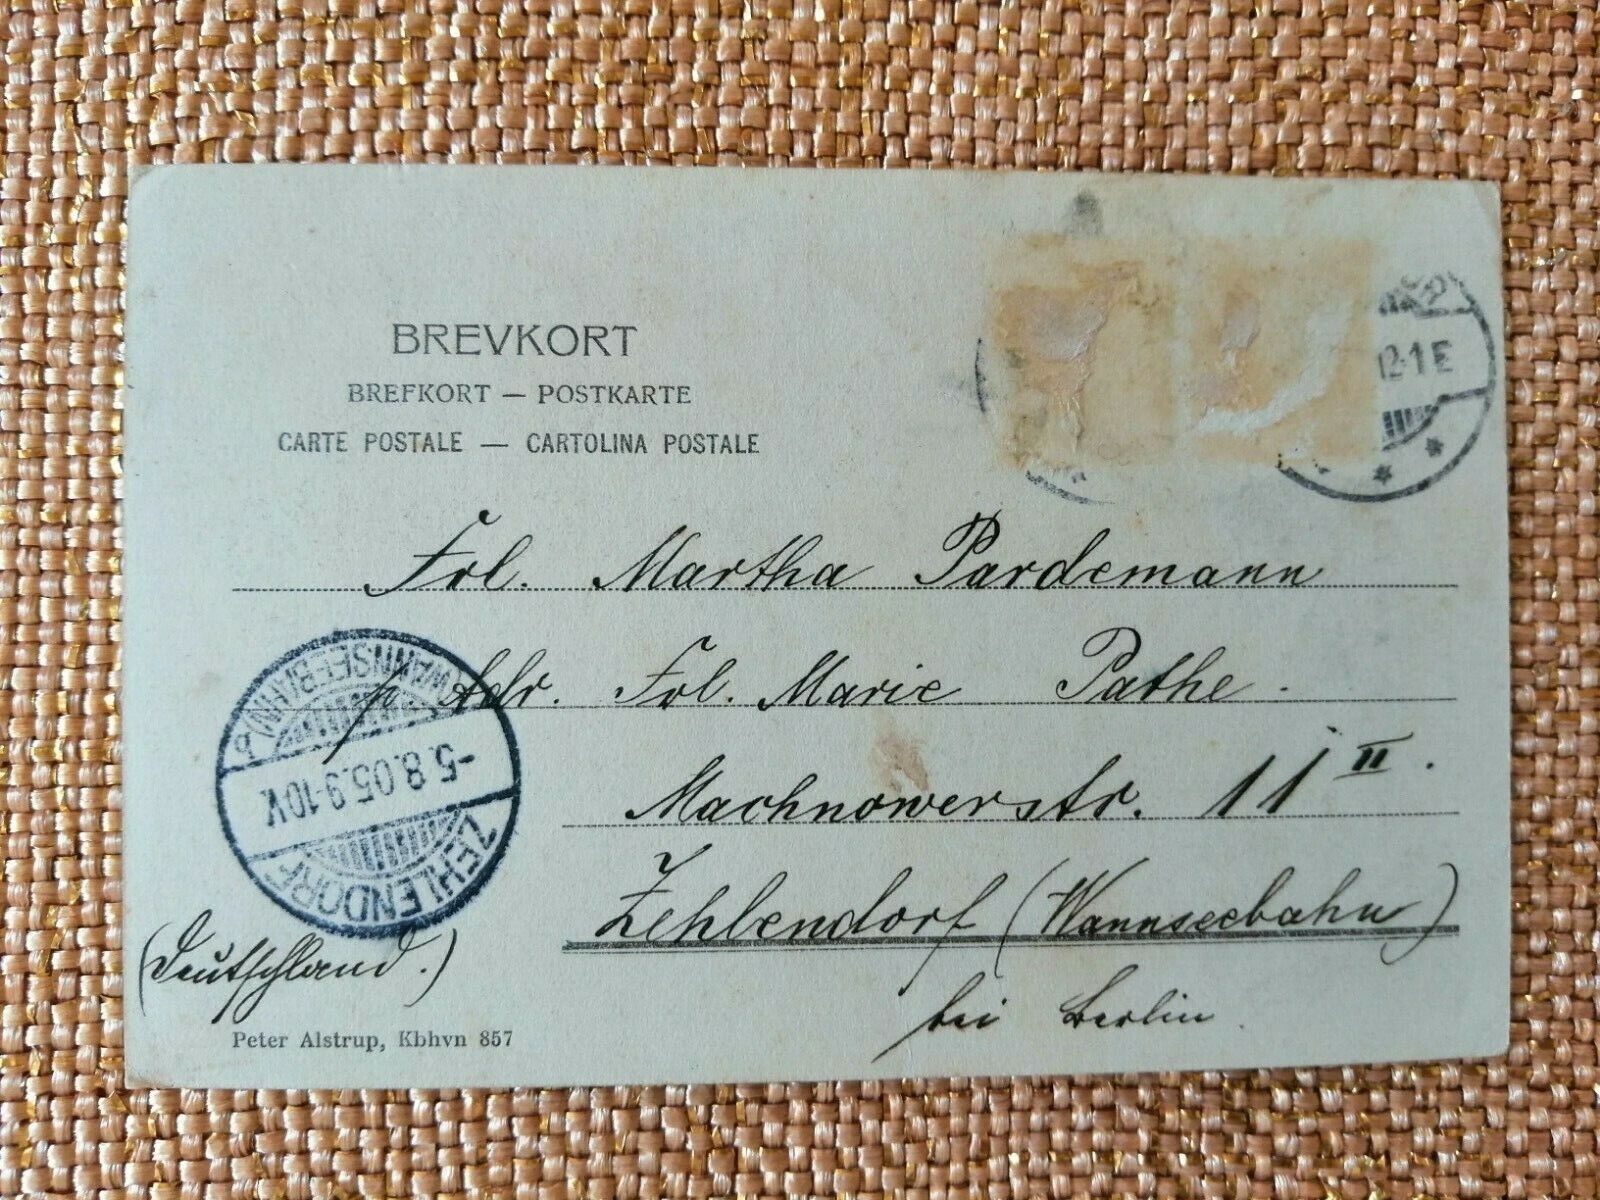 BREVKORT
BREFKORT — POSTKARTE
CARTE POSTALE — CARTOLINA POSTALE
12-1 E
* *
Frl. Martha Pardemann
p. Adr. Frl. Marie Pathe.
Machnowerstr. 11 II.
Zehlendorf (Wannseebahn)
bei Berlin.
(Deutschland.)
ZEHLENDORF
-5.8.05.9-10V.
(WANNSEEBAHN) b
Peter Alstrup, Kbhvn 857